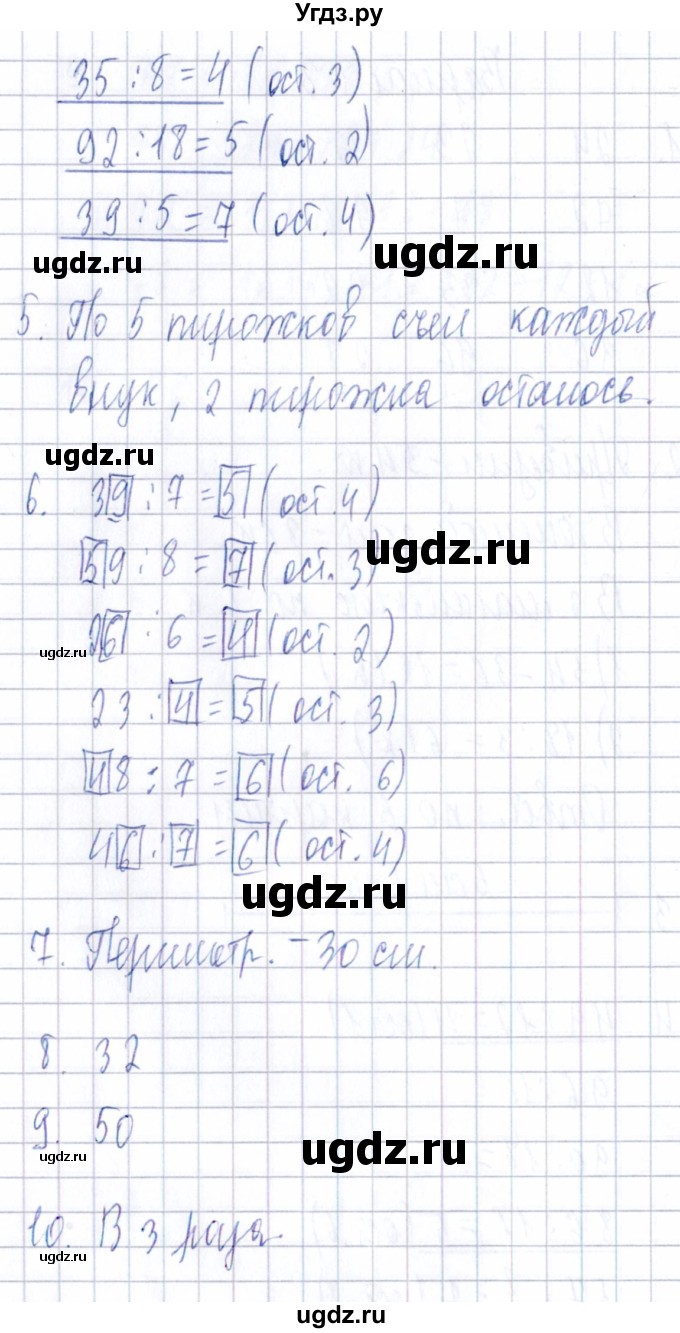 Угдз.ру
35 : 8 = 4 (ост. 3)
92 : 18 = 5 (ост. 2)
39 : 5 = 7 (ост. 4)
ugdz.ru ugdz.ru
5. По 5 пирожков съел каждый
внук, 2 пирожка осталось.
ugdz.ru
6. 39 : 7 = 5 (ост. 4)
ugdz.ru
59 : 8 = 7 (ост. 3)
26 : 6 = 4 (ост. 2)
ugdz.ru
23 : 4 = 5 (ост. 3)
48 : 7 = 6 (ост. 6)
46 : 7 = 6 (ост. 4)
ugdz.ru
7. Периметр. - 30 см.
8. 32
9. 50
ugdz.ru ugdz.ru
10. В 3 раза
ugdz.ru
ugdz.ru